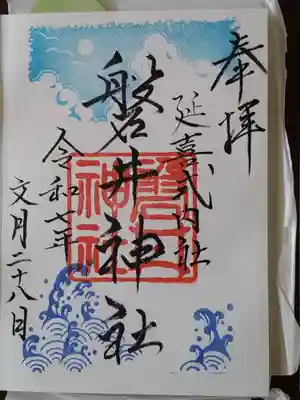 奉拝
延喜式内社
磐井神社
令和七年
文月二十八日
磐井
神社